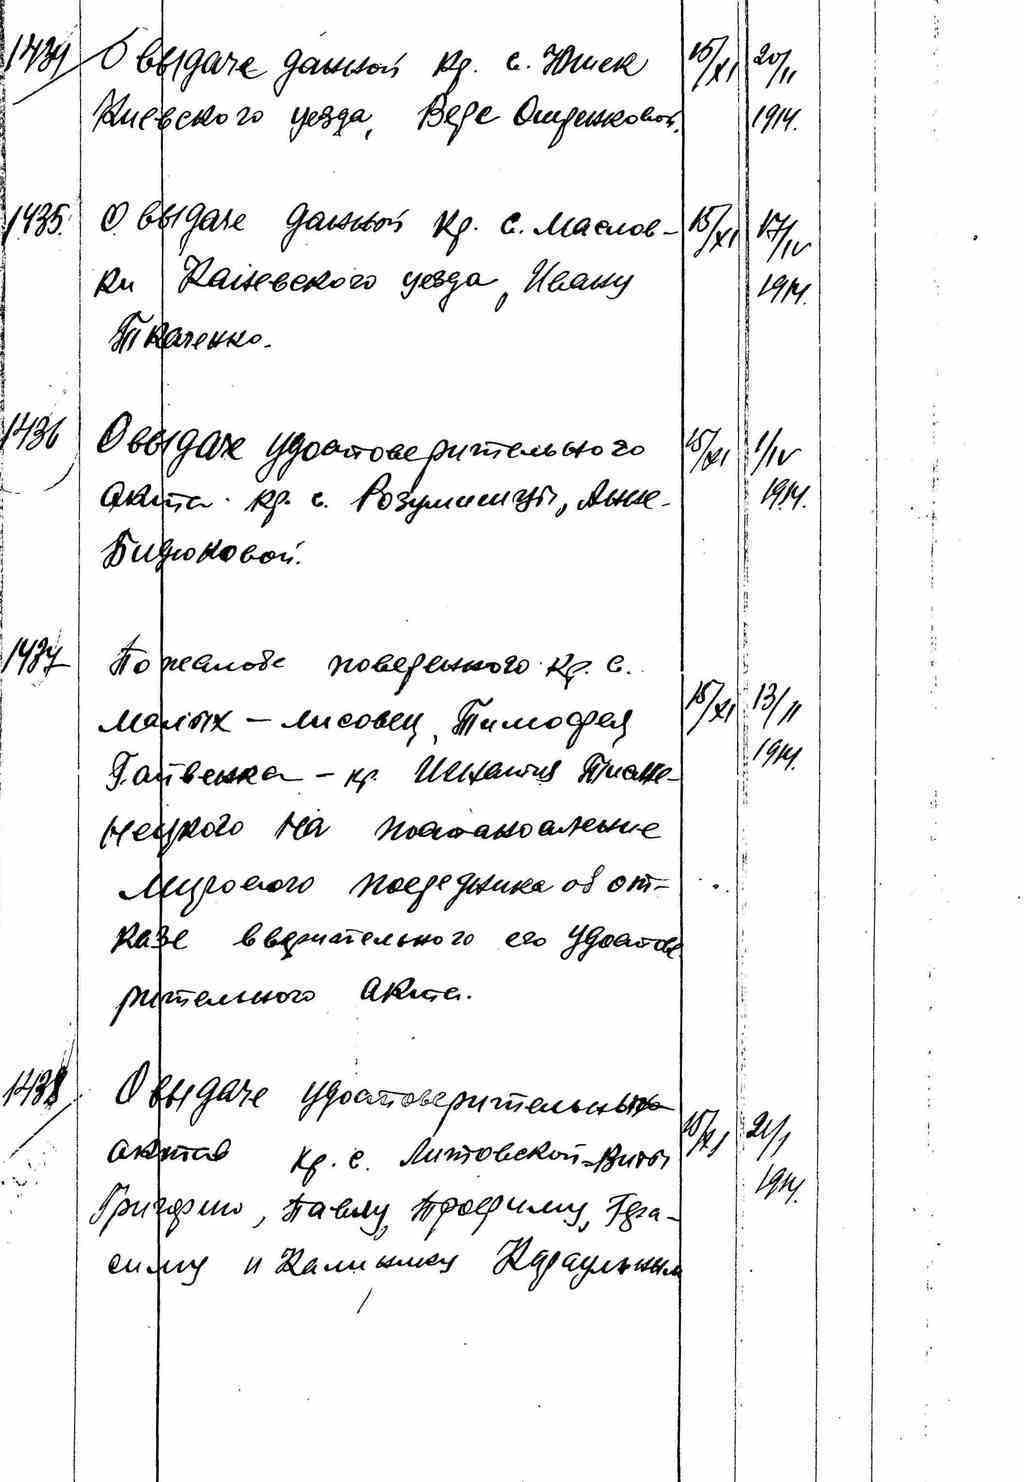 1434 О выдаче данной кр. с. Юшек 15/XI 20/II
Киевского уезда, Вере 1914.
1435 О выдаче данной кр. с. Маслов- 15/XI 17/IV
ки Каневского уезда, Ивану 1914.
Ткаченко.
1436 О выдаче удостоверительного 15/XI 1/IV
акта кр. с. Розумницы, Анне 1914.
Бирюковой.
1437 По жалобе поверенного кр. с.
Малых-Лисовец, Тимофея 15/XI 13/II
Гайвенка - кр. Игнатия 1914.
на постановление
Мирового посредника об от-
казе его удостове
рительного акта.
1438 О выдаче удостоверительных
актов кр. с. Литовской-Виты 15/XI 21/I
Григорию, Павлу, Трофиму, Гера- 1914.
симу и Калинику Караульным